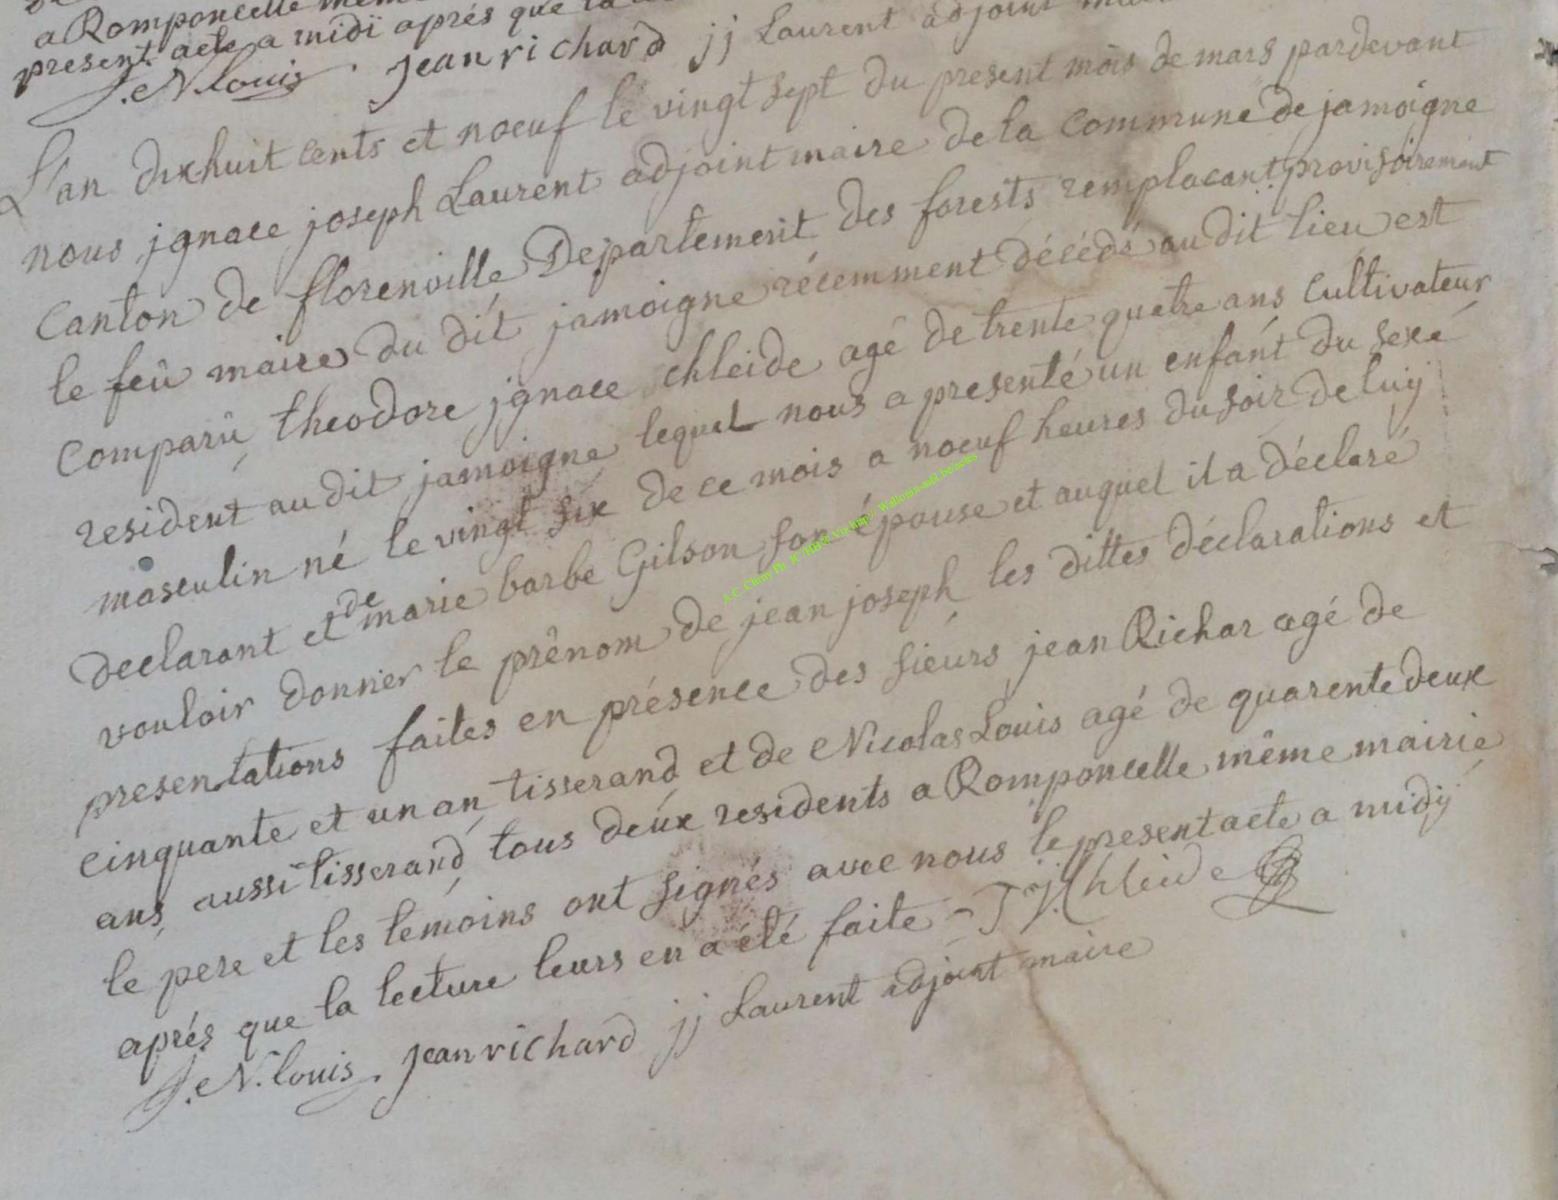 a Romponcelle mem
present acte a midi aprés que la
J. N. louis. jean richard jj Laurent adjoint
L'an dix huit cents et noeuf le vingt sept du present mois de mars pardevant
nous jgnace joseph Laurent adjoint maire de la commune de jamoigne
canton de florenville Departement des forests remplacant provisoirement
le feû maire du dit jamoigne récemment décédé au dit lieu est
comparû theodore jgnace chleide agé de trente quatre ans cultivateur
resident au dit jamoigne lequel nous a presenté un enfant du sexe
masculin né le vingt six de ce mois a noeuf heures du soir de luy
declarant et de marie barbe Gilson son épouse et auquel il a déclaré
vouloir donner le prênom de jean joseph les dittes déclarations et
presentations faites en présence des sieurs jean Richar agé de
cinquante et un an tisserand et de Nicolas Louis agé de quarente deux
ans aussi tisserand tous deux residents a Romponcelle même mairie
le pere et les temoins ont signés avec nous le present acte a midy
aprés que la lecture leurs en a été faite - T J Chleide
J. N. louis. jean richard jj Laurent adjoint maire